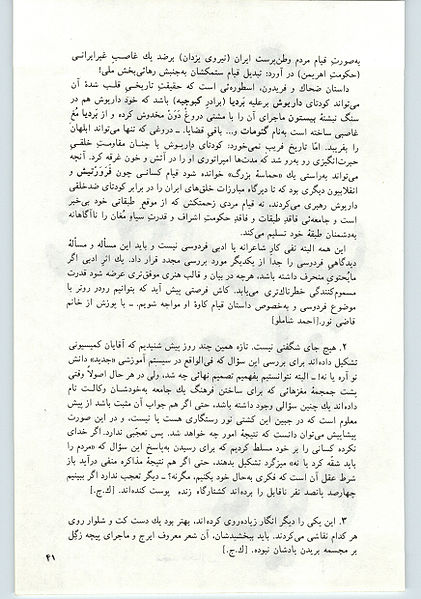 به‌صورت قیام مردم وطن‌پرست ایران (نیروی یزدان) برضد یك غاصب غیرایرانی
(حکومت اهریمن) در آورد: تبدیل قیام ستمکشان به‌جنبش رهائی‌بخش ملی!
داستان ضحاك و فریدون، اسطوره‌ئی است که حقیقت تاریخی قلب شدهٔ آن
می‌تواند کودتای داریوش برعلیه بَردیا (برادر کبوجیه) باشد که خود داریوش هم در
سنگ نبشتهٔ بیستون ماجرای آن را با مشتی دروغ مخدوش کرده و از بَردیا مُغ
غاصبی ساخته است به‌نام گئومات و... باقی قضایا. ــ دروغی که تنها می‌تواند ابلهان
را بفریبد. امّا تاریخ فریب نمی‌خورد: کودتای داریوش با چنان مقاومت خلقی
حیرت‌انگیزی رو به‌رو شد که مدت‌ها امپراتوری او را در آتش و خون غرقه کرد. آنچه
می‌تواند به‌راستی یك «حماسهٔ بزرگ» خوانده شود قیام کسانی چون فْرَوَرْتیش و
انقلابیون دیگری بود که تا دیرگاه مبارزات خلق‌های ایران را در برابر کودتای ضدخلقی
داریوش رهبری می‌کردند، نه قیام مردی زحمتکش که از موقع طبقاتی خود بی‌خبر
است و جامعه‌ئی فاقد طبقات و فاقد حکومت اشراف و قدرت سیاه مُغان را ناآگاهانه
به‌دشمنان طبقهٔ خود تسلیم می‌کند.
این همه البته نفی کار شاعرانه یا ادبی فردوسی نیست و باید این مسأله و مسألهٔ
دیدگاهی فردوسی را جدا از یکدیگر مورد بررسی مجدد قرار داد. یك اثر ادبی اگر
مایحتوی منحرف داشته باشد، هرچه در بیان و قالب هنری موفق‌تری عرضه شود قدرت
مسموم‌کنندگی خطرناك‌تری می‌یابد. کاش فرصتی پیش آید که بتوانیم رودر روتر با
موضوع فردوسی و به‌خصوص داستان قیام کاوهٔ او مواجه شویم. ــ با پوزش از خانم
قاضی نور.[احمد شاملو]
۲. هیچ جای شگفتی نیست. تازه همین چند روز پیش شنیدیم که آقایان کمیسیونی
تشکیل داده‌اند برای بررسی این سؤال که فی‌الواقع در سیستم آموزشی «جدید» دانش
نو آره یا نه! ــ البته نتوانستیم بفهمیم تصمیم نهائی چه شد، ولی در هر حال اصولاً وقتی
پشت جمجمهٔ مغزهائی که برای ساختن فرهنگ یك جامعه به‌خودشان وکالت تام
داده‌اند یك چنین سؤالی وجود داشته باشد، حتی اگر هم جواب آن مثبت باشد از پیش
معلوم است که در جبین این کشتی نور رستگاری هست یا نیست، و در این صورت
پیشاپیش می‌توان دانست که نتیجهٔ امور چه خواهد شد. پس تعجّبی ندارد. اگر خدای
نکرده کسانی را بر خود مسلط کردیم که برای رسیدن به‌پاسخ این سؤال که «مردم را
باید شقّه کرد یا نه» میزگرد تشکیل بدهند، حتی اگر هم نتیجهٔ مذاکره منفی درآید باز
شرط عقل آن است که فکری به‌حال خود بکنیم، مگرنه؟ ــ دیگر تعجب ندارد اگر ببینیم
چهارصد پانصد نفر ناقابل را برده‌اند کشتارگاه زنده پوست کنده‌اند. [ك.ج.]
۳. این یکی را دیگر انگار زیاده‌روی کرده‌اند، بهتر بود یك دست کت و شلوار روی
هر کدام نقاشی می‌کردند. باید ببخشیدشان، آن شعر معروف ایرج و ماجرای پیچه زگِل
بر مجسمه بریدن یادشان نبوده. [ك.ج.]
۴۱